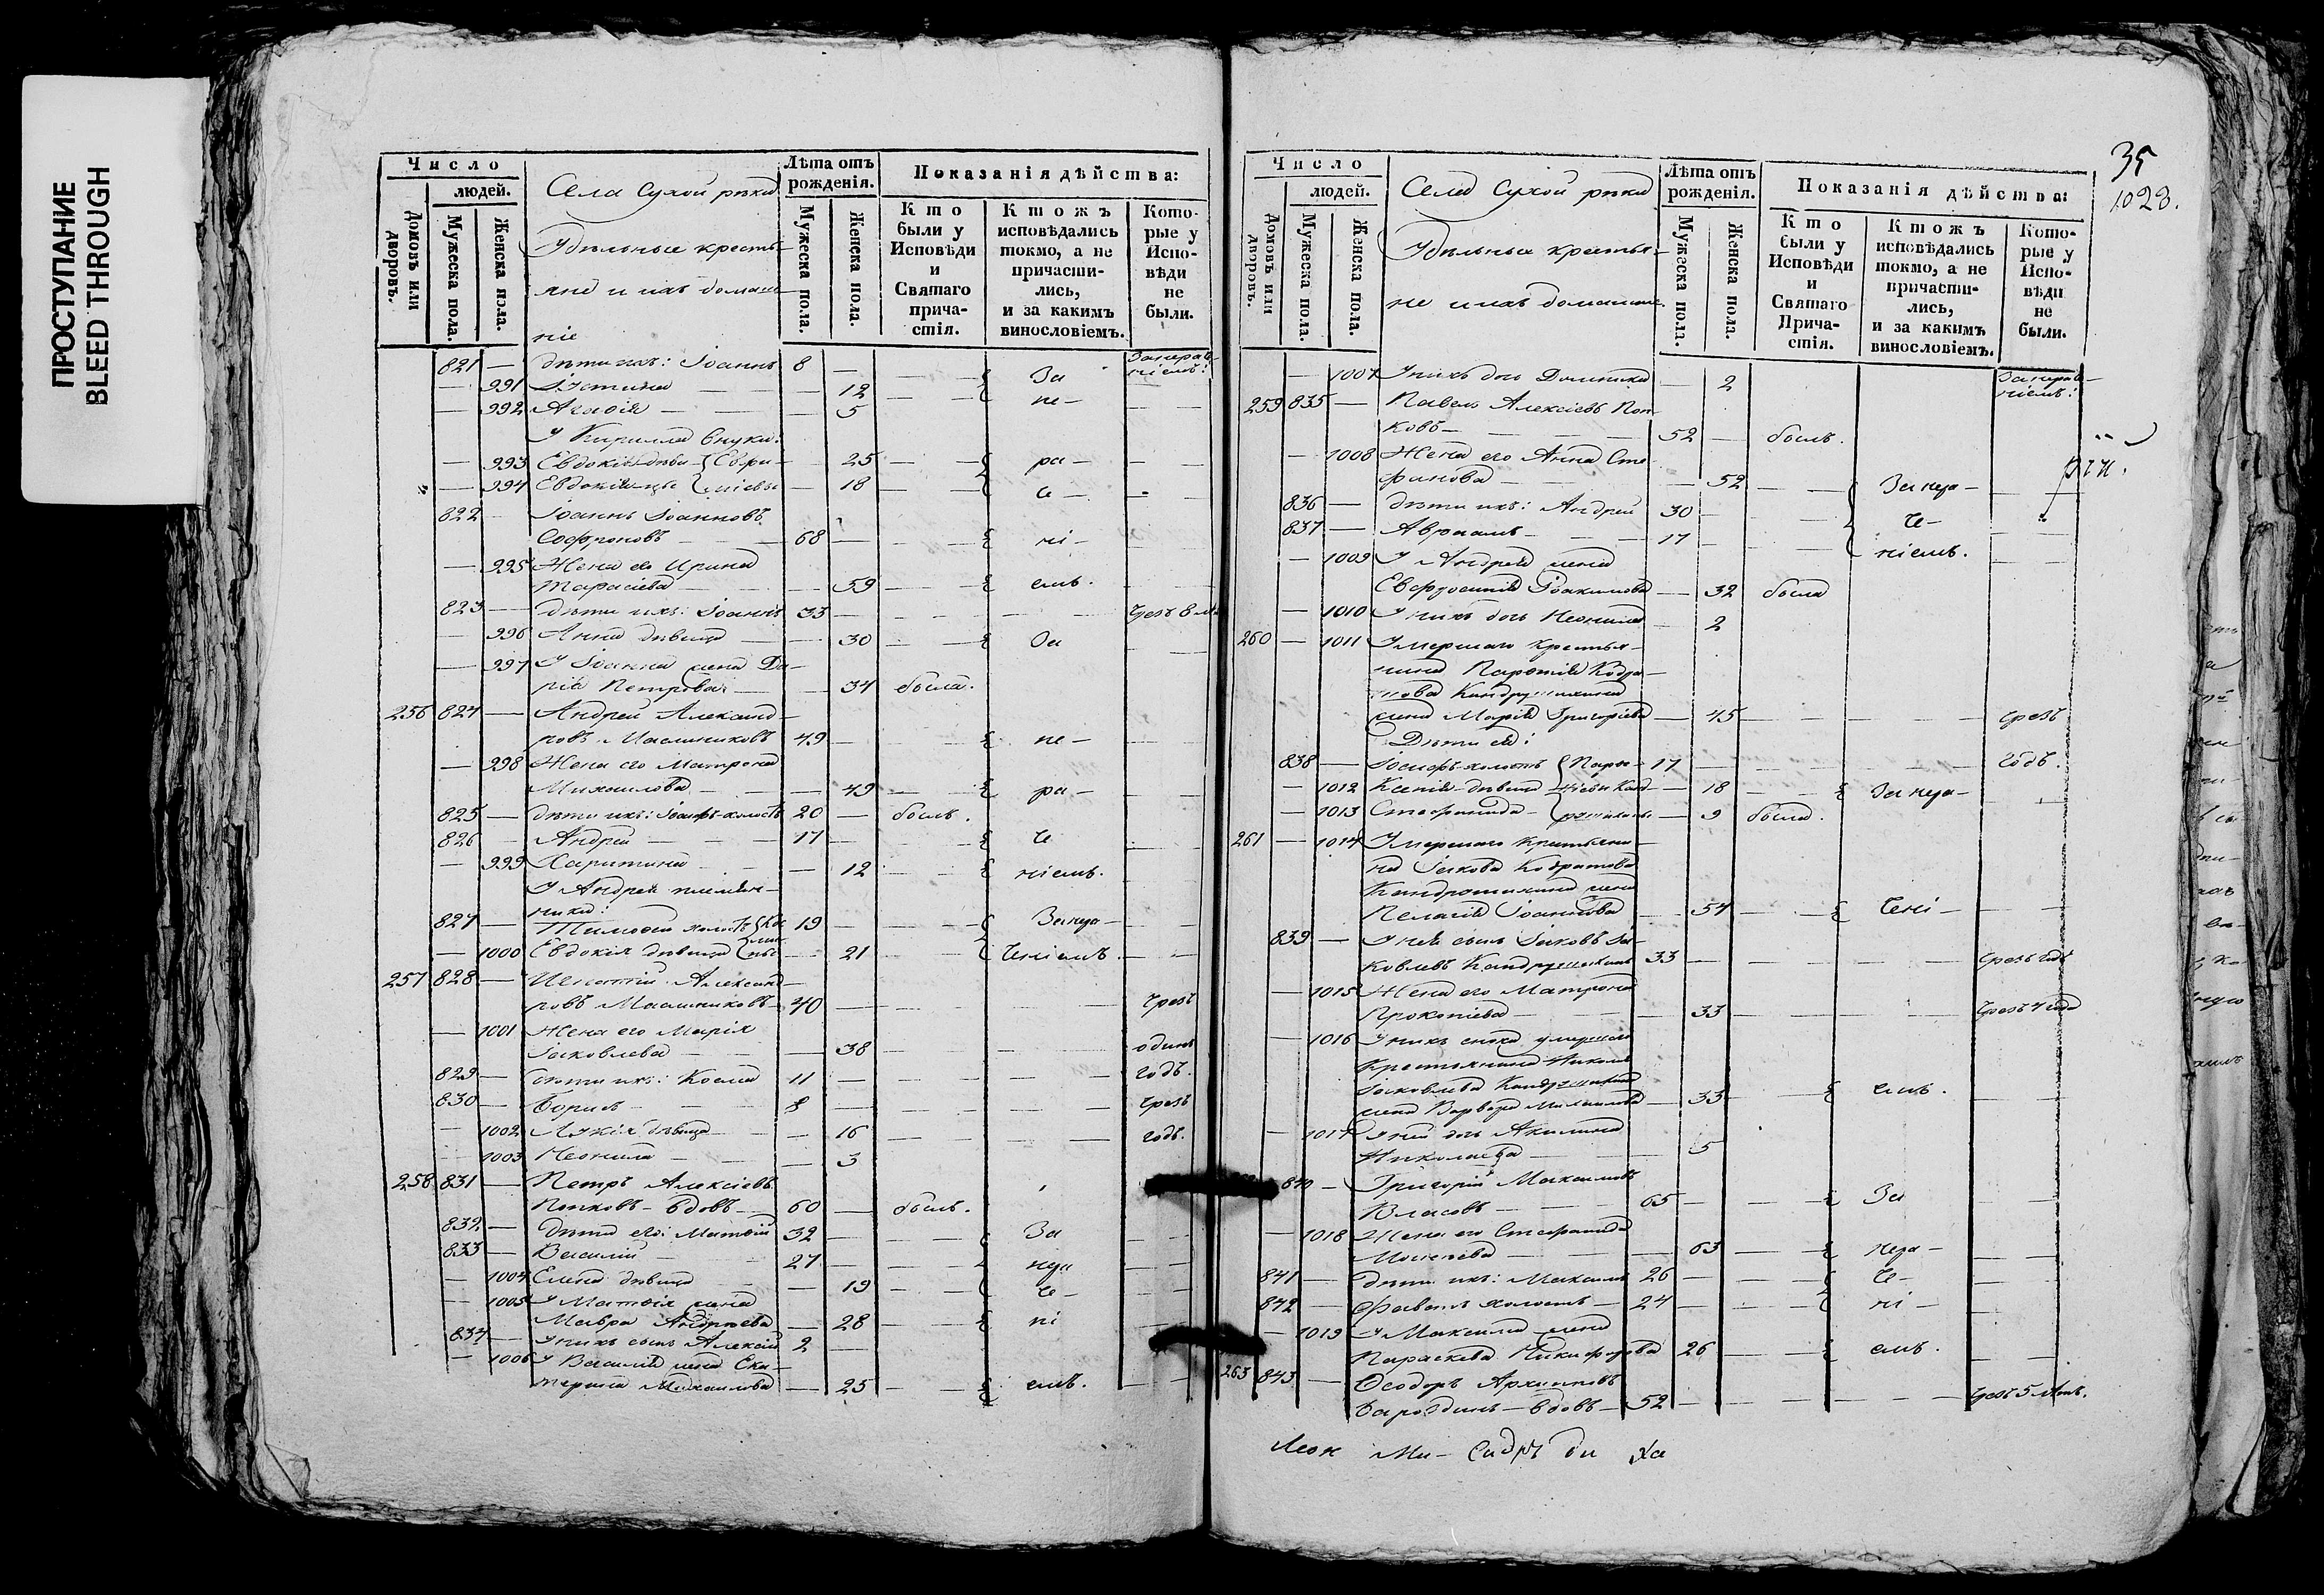 ПРОСТУПАНИЕ
BLEED THROUGH
Число
людей.
Домовъ или дворовъ.
Мужеска пола.
Женска пола.
Села Сухой рѣки
Удѣльные кресть-
яне и ихъ домаш-
ніе
Лѣта отъ рожденія.
Мужеска пола.
Женска пола.
Показанія дѣйства:
Кто были у Исповѣди и Святаго причастія.
Ктожъ исповѣдались токмо, а не причастились, и за какимъ винословіемъ.
Которые у Исповѣди не были.
821 — дѣти ихъ: Іоаннъ 8 —
— 991 Устинья — 12 — За
— 992 Агафія — 5 не —
У Кирилла внуки:
— 993 Евдокія — 25 — ра —
— 994 Евдокія — 18 — че —
822 Іоаннъ Іоанновъ
Софроновъ — 68 — ні —
— 995 Жена его Ирина
Тарасіева — 59 — емъ.
823 — дѣти ихъ: Іоаннъ 33 —
— 996 Анна дѣвица — 30 — За
— 997 У Іоанна жена Да-
рія Петрова — 34 была.
256 824 — Андрей Александ-
ровъ Масленниковъ 49 — не —
— 998 Жена его Матрона
Михаилова — 49 — ра —
825 — дѣти ихъ: Іосифъ холостъ 20 — былъ.
826 — Андрей — 17 — че
— 999 Харитина — 12 — ніемъ.
У Андрея племян-
ники:
827 — Тимофей холостъ 19 — Занера —
— 1000 Евдокія дѣвица — 21 — ченіемъ. —
257 828 — Игнатій Александ-
ровъ Масленниковъ — 40 — чрезъ
— 1001 Жена его Марія
Іаковлева — 38 — одинъ
829 — дѣти ихъ: Косма 11 — годъ.
830 — Борисъ — 8 — чрезъ
1002 Лукія дѣвица — 16 — годъ.
1003 Неонила — 3
258 831 — Петръ Алексіевъ
Попковъ — вдовъ — 60 — былъ.
832 — Дѣти его: Матвій 32 — За
833 — Василій — 27 — нера
— 1004 Елена дѣвица — 19 — че —
— 1005 У Матвія жена
Мавра Андреева — 28 — ні
834 — У нихъ сынъ Алексій 2 —
— 1006 У Василія жена Ека-
терина Михаилова — 25 — емъ. —
Число
людей.
Домовъ или дворовъ.
Мужеска пола.
Женска пола.
Села Сухой рѣки
Удѣльные крестья-
не и ихъ домашніе.
Лѣта отъ рожденія.
Мужеска пола.
Женска пола.
Показанія дѣйства:
Кто были у Исповѣди и Святаго Причастія.
Ктожъ исповѣдались токмо, а не причастились, и за какимъ винословіемъ.
Которые у Исповѣди не были.
35
1023.
— 1007 У нихъ дочь Домника — 2
259 835 — Павелъ Алексіевъ Поп-
ковъ — 52 — былъ.
— 1008 Жена его Анна Сте-
фанова — 52 — За нера —
836 — дѣти ихъ: Андрей 30 — че —
837 — Авраамъ — 17 —
— 1009 У Андрея жена ніемъ.
Евфросинія Іоакимова — 32 была
— 1010 У нихъ дочь Неонила — 2
260 — 1011 Умершаго крестья-
нина
жена Марія Григоріева — 45 — чрезъ
Дѣти ея:
838 — Іосифъ холостъ — 17 — годъ.
— 1012 Ксенія дѣвица — 18 — За нера —
— 1013 Стефанида — 9 была.
261 — 1014 Умершаго крестьяни-
на Іакова Кодратова
Кандрашихина жена
Пелагія Іоаннова — 54 — чені —
839 — У нея сынъ Іаковъ Іа-
ковлевъ 33 — чрезъ годъ
— 1015 Жена его Матрона
Прокопіева — 33 — чрезъ 4 года
— 1016 У нихъ сноха умершаго
крестьянина Николая
Іаковлева
жена Варвара Михаилова — 33 — емъ.
— 1017 У ней дочь Акилина
Николаева — 5
840 — Григорій Максимовъ
Власовъ — 65 — За
— 1018 Жена его Стефанида
Моисеева — 63 — нера —
841 — дѣти ихъ: Максимъ 26 — че —
842 — холостъ — 24 — ні —
— 1019 У Максима жена
Параскева Никифорова 26 — емъ.
263 843 — Ѳеодоръ Архиповъ
вдовъ — 52 — чрезъ 5 лѣтъ.